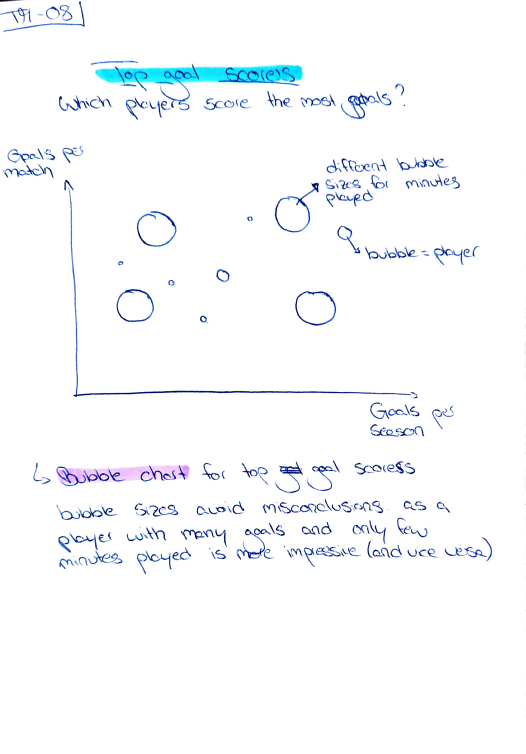 T91-08
Top goal scorers
Which players score the most goals?
Goals per
match
different bubble
sizes for minutes
played
bubble = player
Goals per
season
↳ Bubble chart for top goal scorers
bubble sizes avoid misconclusions as a
player with many goals and only few
minutes played is more impressive (and vice versa)